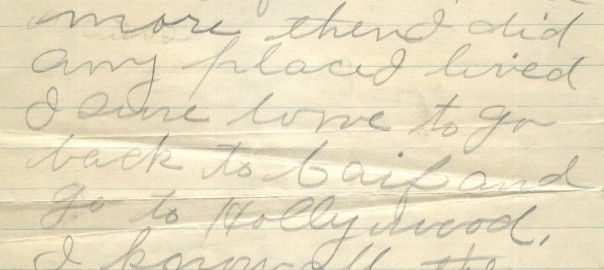 more then I did
any place I lived
I sure love to go
back to Caif and
go to Hollywood,
I know all the